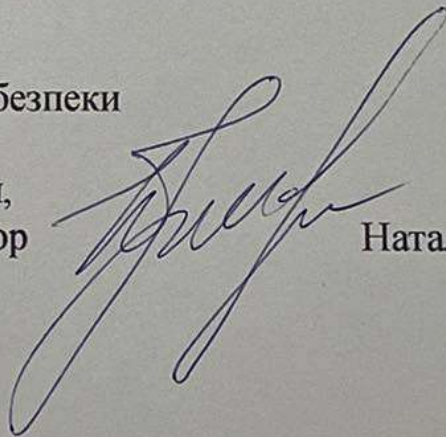 безпеки
,
ор Натал